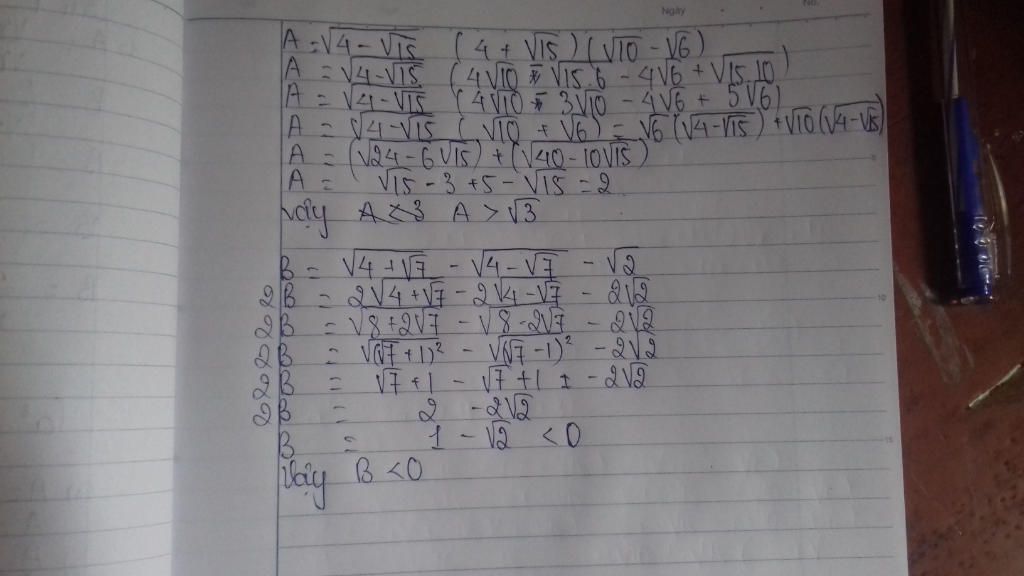 Ngày
No.
A = √(4-√15) (4 + √15)(√10 - √6)
A = √(4-√15) (4√10 - √(15.6) - 4√6 + √(15.10))
A = √(4-√15) (4√10 - 3√10 - 4√6 + 5√6)
A = √(4-√15) (√10 + √6) = √6(√(4-√15)) + √10(√(4-√15))
A = (√(24-6√15)) + (√(40-10√15))
A = √15 - 3 + 5 - √15 = 2
Vậy A < 3 A > √3
B = √(4+√7) - √(4-√7) - √2
2B = 2√(4+√7) - 2√(4-√7) - 2√2
2B = √(8+2√7) - √(8-2√7) - 2√2
2B = √((√7+1)²) - √((√7-1)²) - 2√2
2B = √7+1 - √7+1 ± - 2√2
2B = 2 - 2√2
B = 1 - √2 < 0
Vậy B < 0